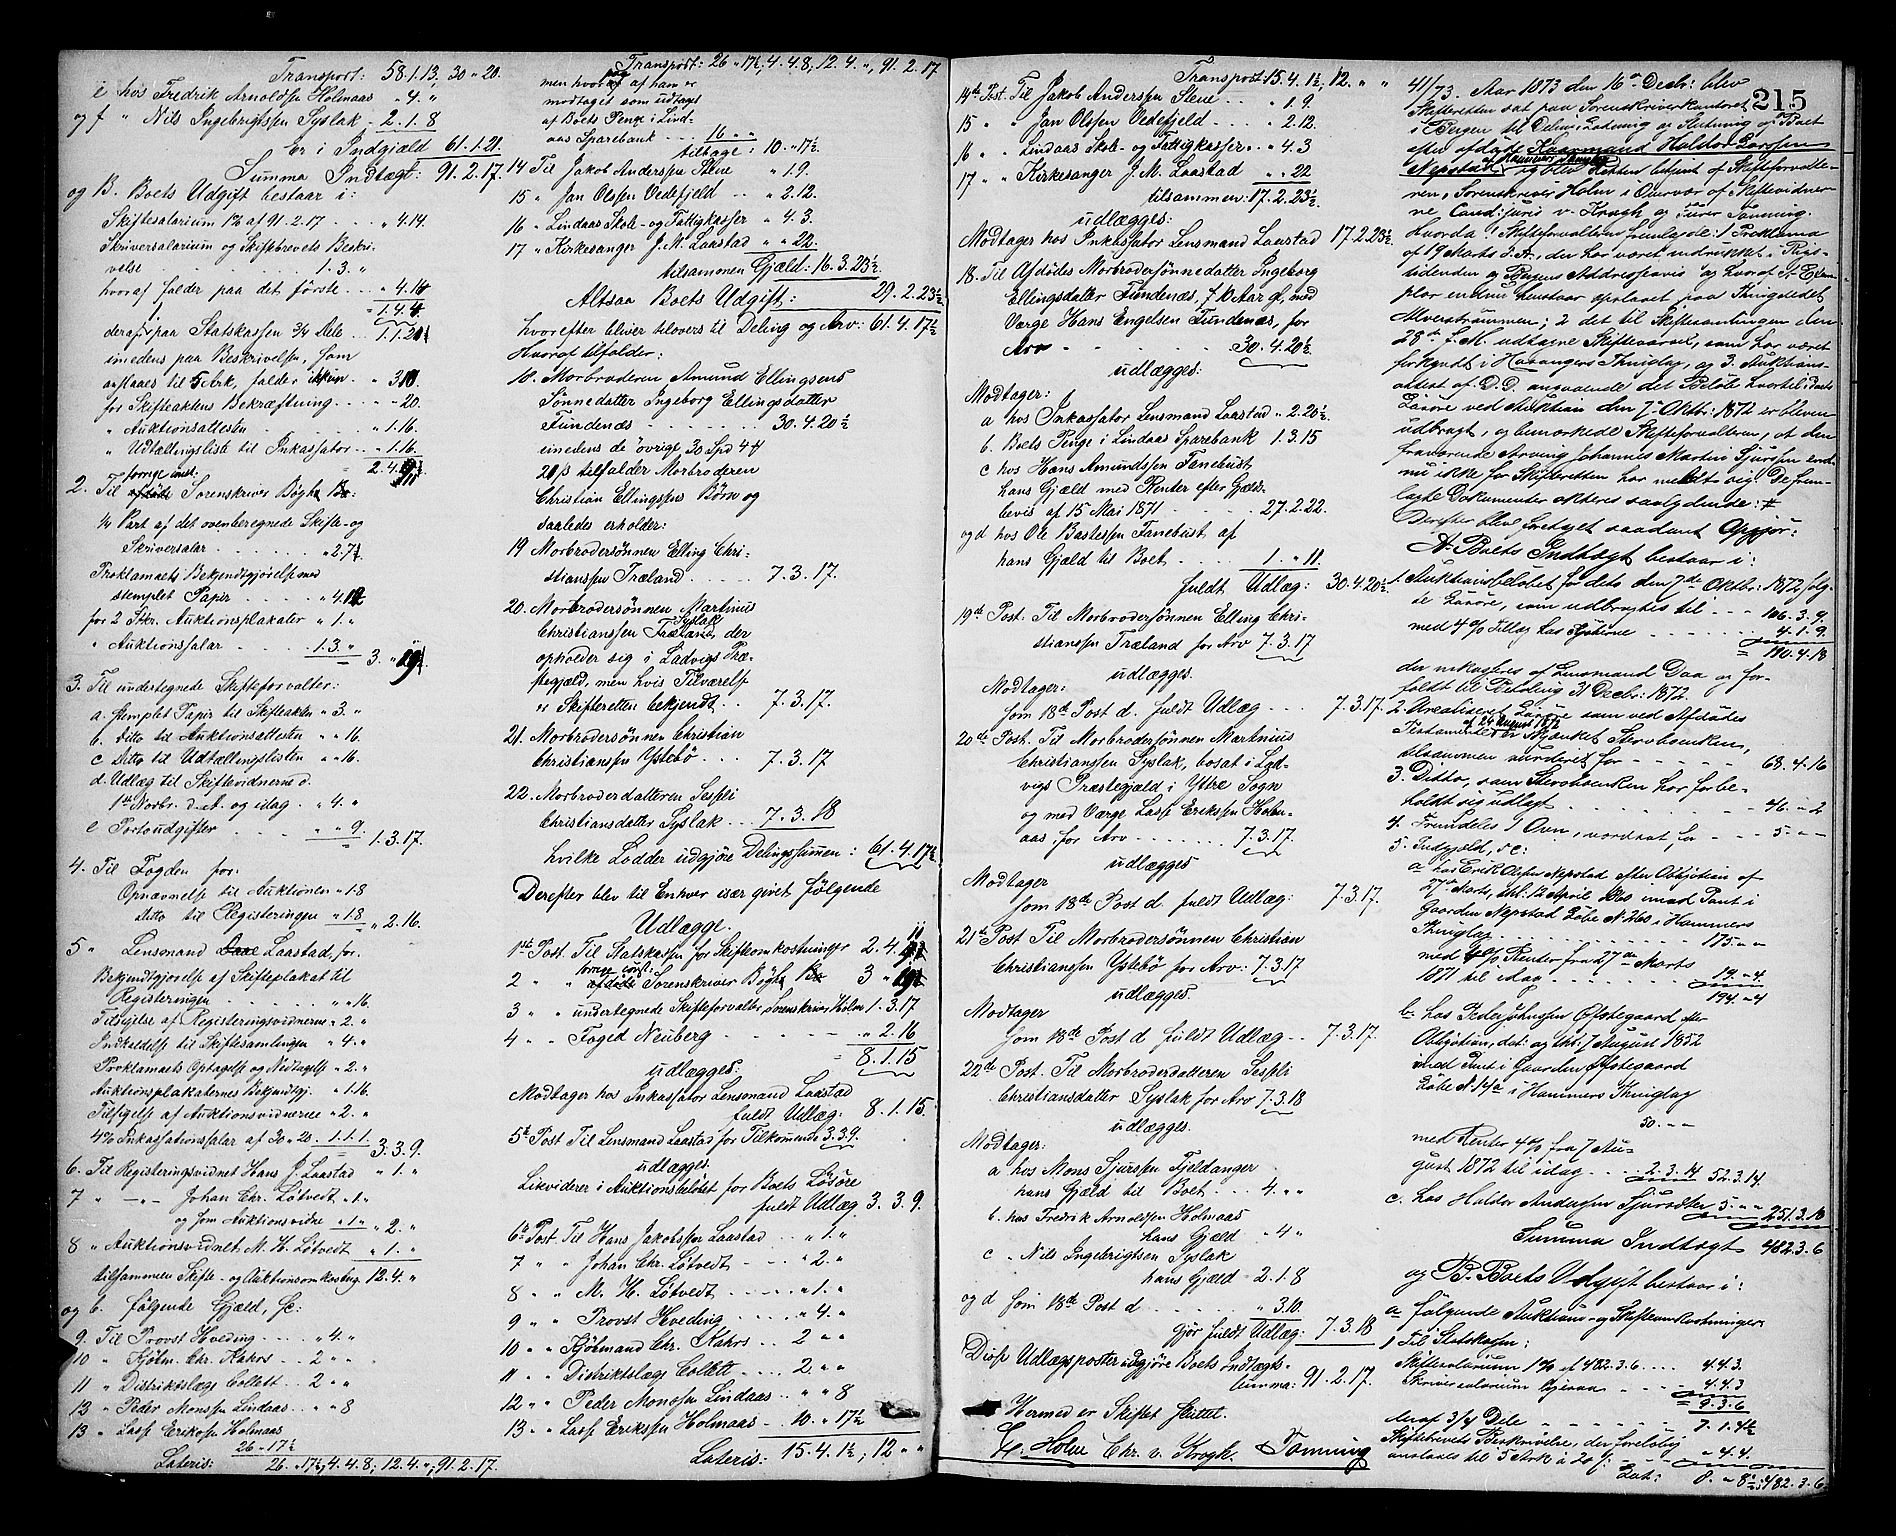 Transport: 58.1.13, 30 " 20.
e hos Fredrik Arnoldsen Holmaas " 4. "
og f " Nils Ingebrigtsen Syslak - 2.1.8
Er i Indgjæld 61.1.21.
Summa Indtægt: 91.2.17.
og B. Boets Udgift bestaar i:
Skiftesalarium 1% af 91.2.17 " 4.14.
Skriversalarium og Skiftebrevets Beskri-
velse 1.3. "
hvoraf falder paa det første " 4.14
1.4.4
deraf paa Statskassen 3/4 Dele
imedens paa Beskrivelsen, som
ansaaes til 5 Ark, falder
for Skifteaktens Bekræftning " " 20.
" Auktionsattesten " 1.16.
" Udtællingsliste til Inkassator " 1.16.
2. Til Sorenskriver Bøgh
1/4 Part af det ovenberegnede Skifte- og
Skriversalar " 2.7½
Proklamaets Bekjendtgjørelse med
stemplet Papir
for 2 Stkr. Auktionsplakater " 1. "
" Auktionssalar 1.3. "
3. Til undertegnede Skifteforvalter:
a. stemplet Papir til Skifteakten " 3. "
b. Ditto til Auktionsattesten " " 16.
c Ditto til Udtællingslisten " " 16.
d. Udlæg til Skiftevidnerne d.
1ste Novbr. d. A. og idag " 4. "
e Portoudgifter " " 9.
1.3.17.
4. Til Fogden for:
Opnævnelse til Auktionen " 1.8
Ditto til Registeringen " 1.8
" 2.16.
5 " Lensmand Laastad, for
Bekjendtgjørelse af Skifteplakat til
Registeringen " " 16.
Tilsigelse af Registeringsvidnerne " 2. "
Indkaldelse til Skiftesamlingen " 4. "
Proklamaets Optagelse og Nedtagelse " 2. "
Auktionsplakaternes Bekjendtgj. " 1.16.
Tilsigelse af Auktionsvidnerne " 2. "
4% Inkassationssalar af 30 " 20. 1.1.1.
3.3.9.
6. Til Registeringsvidnet Hans J. Laastad " 1. "
7 " — " — Johan Chr. Løtvedt " 1. "
og som Auktionsvidne " 1. "
" 2. "
8 " Auktionsvidnet M. H. Løtvedt " 1. "
tilsammen Skifte- og Auktionsomkostng. 12.4. "
og b. følgende Gjæld, &c:
9. Til Provst Hveding " 4. "
10 " Kjøbm. Chr. Kahrs 2 " "
11 " Distriktslæge Collett 2 " "
12 " Peder Monsen Lindaas " " 8
13 " Lars Eriksen Holmaas
26 " 17½
Lateris: 26. " 17½, 4.4.8; 12.4. "; 91.2.17.
Transport: 26 " 17½, 4.4.8, 12.4. ", 91.2.17
men hvoraf af ham er
modtaget som udtaget
af Boets Penge i Lind-
aas Sparebank 16 " "
tilbage: 10. " 17½
14 Til Jakob Andersen Stene " 1.9.
15 " Jan Olssen Vedefjeld " 2.12.
16 " Lindaas Skole- og Fattigkasser " 4.3.
17 " Kirkesanger J. M. Laastad " " 22.
tilsammen Gjæld: 16.3.23½
Altsaa Boets Udgift: 29.2.23½
hvorefter bliver tilovers til Deling og Arv: 61.4.17½
Hvoraf tilfalder:
18. Morbroderen Amund Ellingsens
Sønnedatter Ingeborg Ellingsdatter
Fundenæs 30.4.20½
imedens de øvrige 30 Spd 4
20 ß tilfalder Morbroderen
Christian Ellingssens Børn og
saaledes erholder:
19 Morbrodersønnen Elling Chri-
stianssen Træland 7.3.17.
20. Morbrodersønnen Martinus
Christianssen Syslak der
opholder sig i Ladvigs Præ-
stegjæld, men hvis Tilværelse
er Skifteretten bekjendt 7.3.17.
21. Morbrodersønnen Christian
Christianssen Ystebø 7.3.17
22. Morbroderdatteren Sespli
Christiansdatter Syslak 7.3.18
hvilke Lodder udgjøre Delingssummen: 61.4.17½
Derefter blev til Enhver især givet følgende
Udlægge.
1ste Post. Til Statskassen for Skifteomkostninger
2 " " Sorenskriver Bøgh
3 " " undertegnede Skifteforvalter Sorenskriver Holm 1.3.17
4 " " Foged Neuberg " 2.16
8.1.15
udlægges:
Modtager hos Inkassator Lensmand Laastad
fuldt Udlæg: 8.1.15.
5te Post Til Lensmand Laastad for Tilkommende 3.3.9.
udlægges.
Likviderer i Auktionsbeløbet for Boets Løsøre
fuldt Udlæg 3.3.9.
6te Post. Til Hans Jakobsen Laastad " 1. "
7 " " Johan Chr. Løtvedt " 2. "
8 " " M. H. Løtvedt " 1. "
9 " " Provst Hveding " 4. "
10 " " Kjøbmand Chr. Kahrs 2 " "
11 " " Distriktslæge Collett 2. " "
12 " " Peder Monsen Lindaas " " 8
13 " " Lars Eriksen Holmaas 10. " 17½
Lateris: 15.4.1½; 12 " "
Transport 15.4.1½, 12. " "
14de Post. Til Jakob Anderssen Stene " 1.9.
15 " " Jan Olssen Vedefjeld " 2.12.
16 " " Lindaas Skole- og Fattigkasser " 4.3
17 " " Kirkesanger J. M. Laastad " " 22
tilsammen: 17.2.23½
udlægges:
Modtager hos Inkassator Lensmand Laastad 17.2.23½
18. Til Afdødes Morbrodersønnedatter Ingeborg
Ellingsdatter Fundenæs, 10 Aar gl, med
Værge Hans Engelsen Fundenæs, for
Arv 30.4.20½
udlægges:
Modtager:
a hos Inkassator Lensmand Laastad " 2.20½
b. Boets Penge i Lindaas Sparebank 1.3.15
c hos Hans Amundssen Fanebust
hans Gjæld med Renter efter Gjælds-
bevis af 15 Mai 1871 27.2.22.
og d hos Ole Bastessen Fanebust af
hans Gjæld til Boet 1. " 11.
fuldt Udlæg: 30.4.20½
19de Post. Til Morbrodersønnen Elling Chri-
stianssen Træland for Arv 7.3.17
udlægges
Modtager:
som 18de Post d. fuldt Udlæg 7.3.17.
20de Post. Til Morbrodersønnen Martinus
Christianssen Syslak, bosat i Lad-
vigs Præstegjæld i Ytre Sogn
og med Værge Lars Erikssen Holm-
aas for Arv 7.3.17.
udlægges
Modtager
som 18de Post d. fuldt Udlæg: 7.3.17.
21de Post Til Morbrodersønnen Christian
Christianssen Ystebø for Arv: 7.3.17
udlægges.
Modtager
som 18de Post d fuldt Udlæg 7.3.17.
22de Post. Til Morbroderdatteren Sespli
Christiansdatter Syslak for Arv 7.3.18
udlægges.
Modtager:
a hos Mons Sjurssen Fjeldanger
hans Gjæld til Boet 4. " "
b. hos Fredrik Arnoldsen Holmaas
hans Gjæld " 4 "
c " Nils Ingebrigtsen Syslak
hans Gjæld 2.1.8
og d som 18de Post d " 3.10.
gjør fuldt Udlæg: 7.3.18
Disse Udlægsposter udgjøre Boets Indtægts-
summa: 91.2.17.
Hermed er Skiftet sluttet.
Holm Chr. v. Krogh. Tonning
215
41/73. Aar 1873 den 16de Decbr: blev
Skifteretten sat paa Sorenskriverkontoret
i Bergen til Deling, Lodning og Slutning af Boet
efter afdøde Kaarmand Haldor Larssen
Nepstad af Hammers Thinglag og blev Retten betjent af Skifteforvalte-
ren, Sorenskriver Holm i Overvær af Skiftevidner-
ne, Cand: juris v. Krogh og Tonning.
Hvorda Skifteforvalteren fremlagde: 1 Proklama
af 19 Marts d. Ar, der har været indrykket i Rigs-
tidenden og Bergens Addresseavis og hvoraf et Exem-
plar endnu henstaar opslaaet paa Thingstedet
Alverstrømmen; 2 det til Skiftesamlingen den
28de f. M. udtagne Skiftevarsel, som har været
forkyndt i Thinglag, og 3. Auktions-
attest af D. D. angaaende det Beløb hvortil Boets
Løsøre ved Auktion den 7de Oktbr: 1872 er bleven
udbragt, og bemærkede Skifteforvalteren, at den
fraværende Arving Johannes Martin Sjursen end-
nu ikke for Skifteretten har meldt sig. De frem-
lagte Dokumenter akteres saalydende: #
Derefter blev foretaget saadant Opgjør:
A. Boets Indtægt bestaar i:
1. Auktionsbeløbet for dets den 7de Oktbr: 1872 solg-
te Løsøre, som udbragtes til 106.3.9.
med 4% Tillæg hos Kjøberne 4.1.9.
110.4.18
der inkasseres af Lensmand Daa og for-
faldt til Betaling 31 Decbr: 1872.
2. Urealiseret Løsøre som ved Afdødes
Testamente af 24 August 1872 er skjænket Stervboenken,
tilsammen vurderet for 68.4.16
3. Ditto, som Stervboenken har forbe-
holdt sig udlagt 46. " 2
4. Fremdeles 1 Ovn, værdsat for 5. " "
5. Indgjæld, &c:
a hos Erik Olsen Nepstad efter Obligation af
27de Marts, thl. 12 April 1860 imod Pant i
Gaarden Nepstad Løbe N. 260 i Hammers
Thinglag 175. " "
med 4% Renter fra 27de Marts
1871 til idag 19. " 4.
194. " 4
b. hos Peder Johnsen Øfstegaard efter
Obligation, dat: og thl: 7 August 1852
imod Pant i Gaarden Øfstegaard
Løbe N. 14a i Hammers Thinglag
50. " "
med Renter 4% fra 7 Au-
gust 1872 til idag 2.3.14
52.3.14.
c. hos Haldor Andersen 5. " "
251.3.18
Summa Indtægt 482.3.6
og B. Boets Udgift bestaar i:
a følgende Auktions- og Skifteomkostninger
1 Til Statskassen:
Skiftesalarium 1% af 482.3.6 4.4.3.
Skriversalarium ligesaa 4.4.3
9.3.6
deraf 3/4 Dele 7.1.4½
Skiftebrevets Beskrivelse, der foreløbig
ansaaes til 5 Ark à 20 ß: " 4.4.
Lat: 8. " 8½; 482.3.6